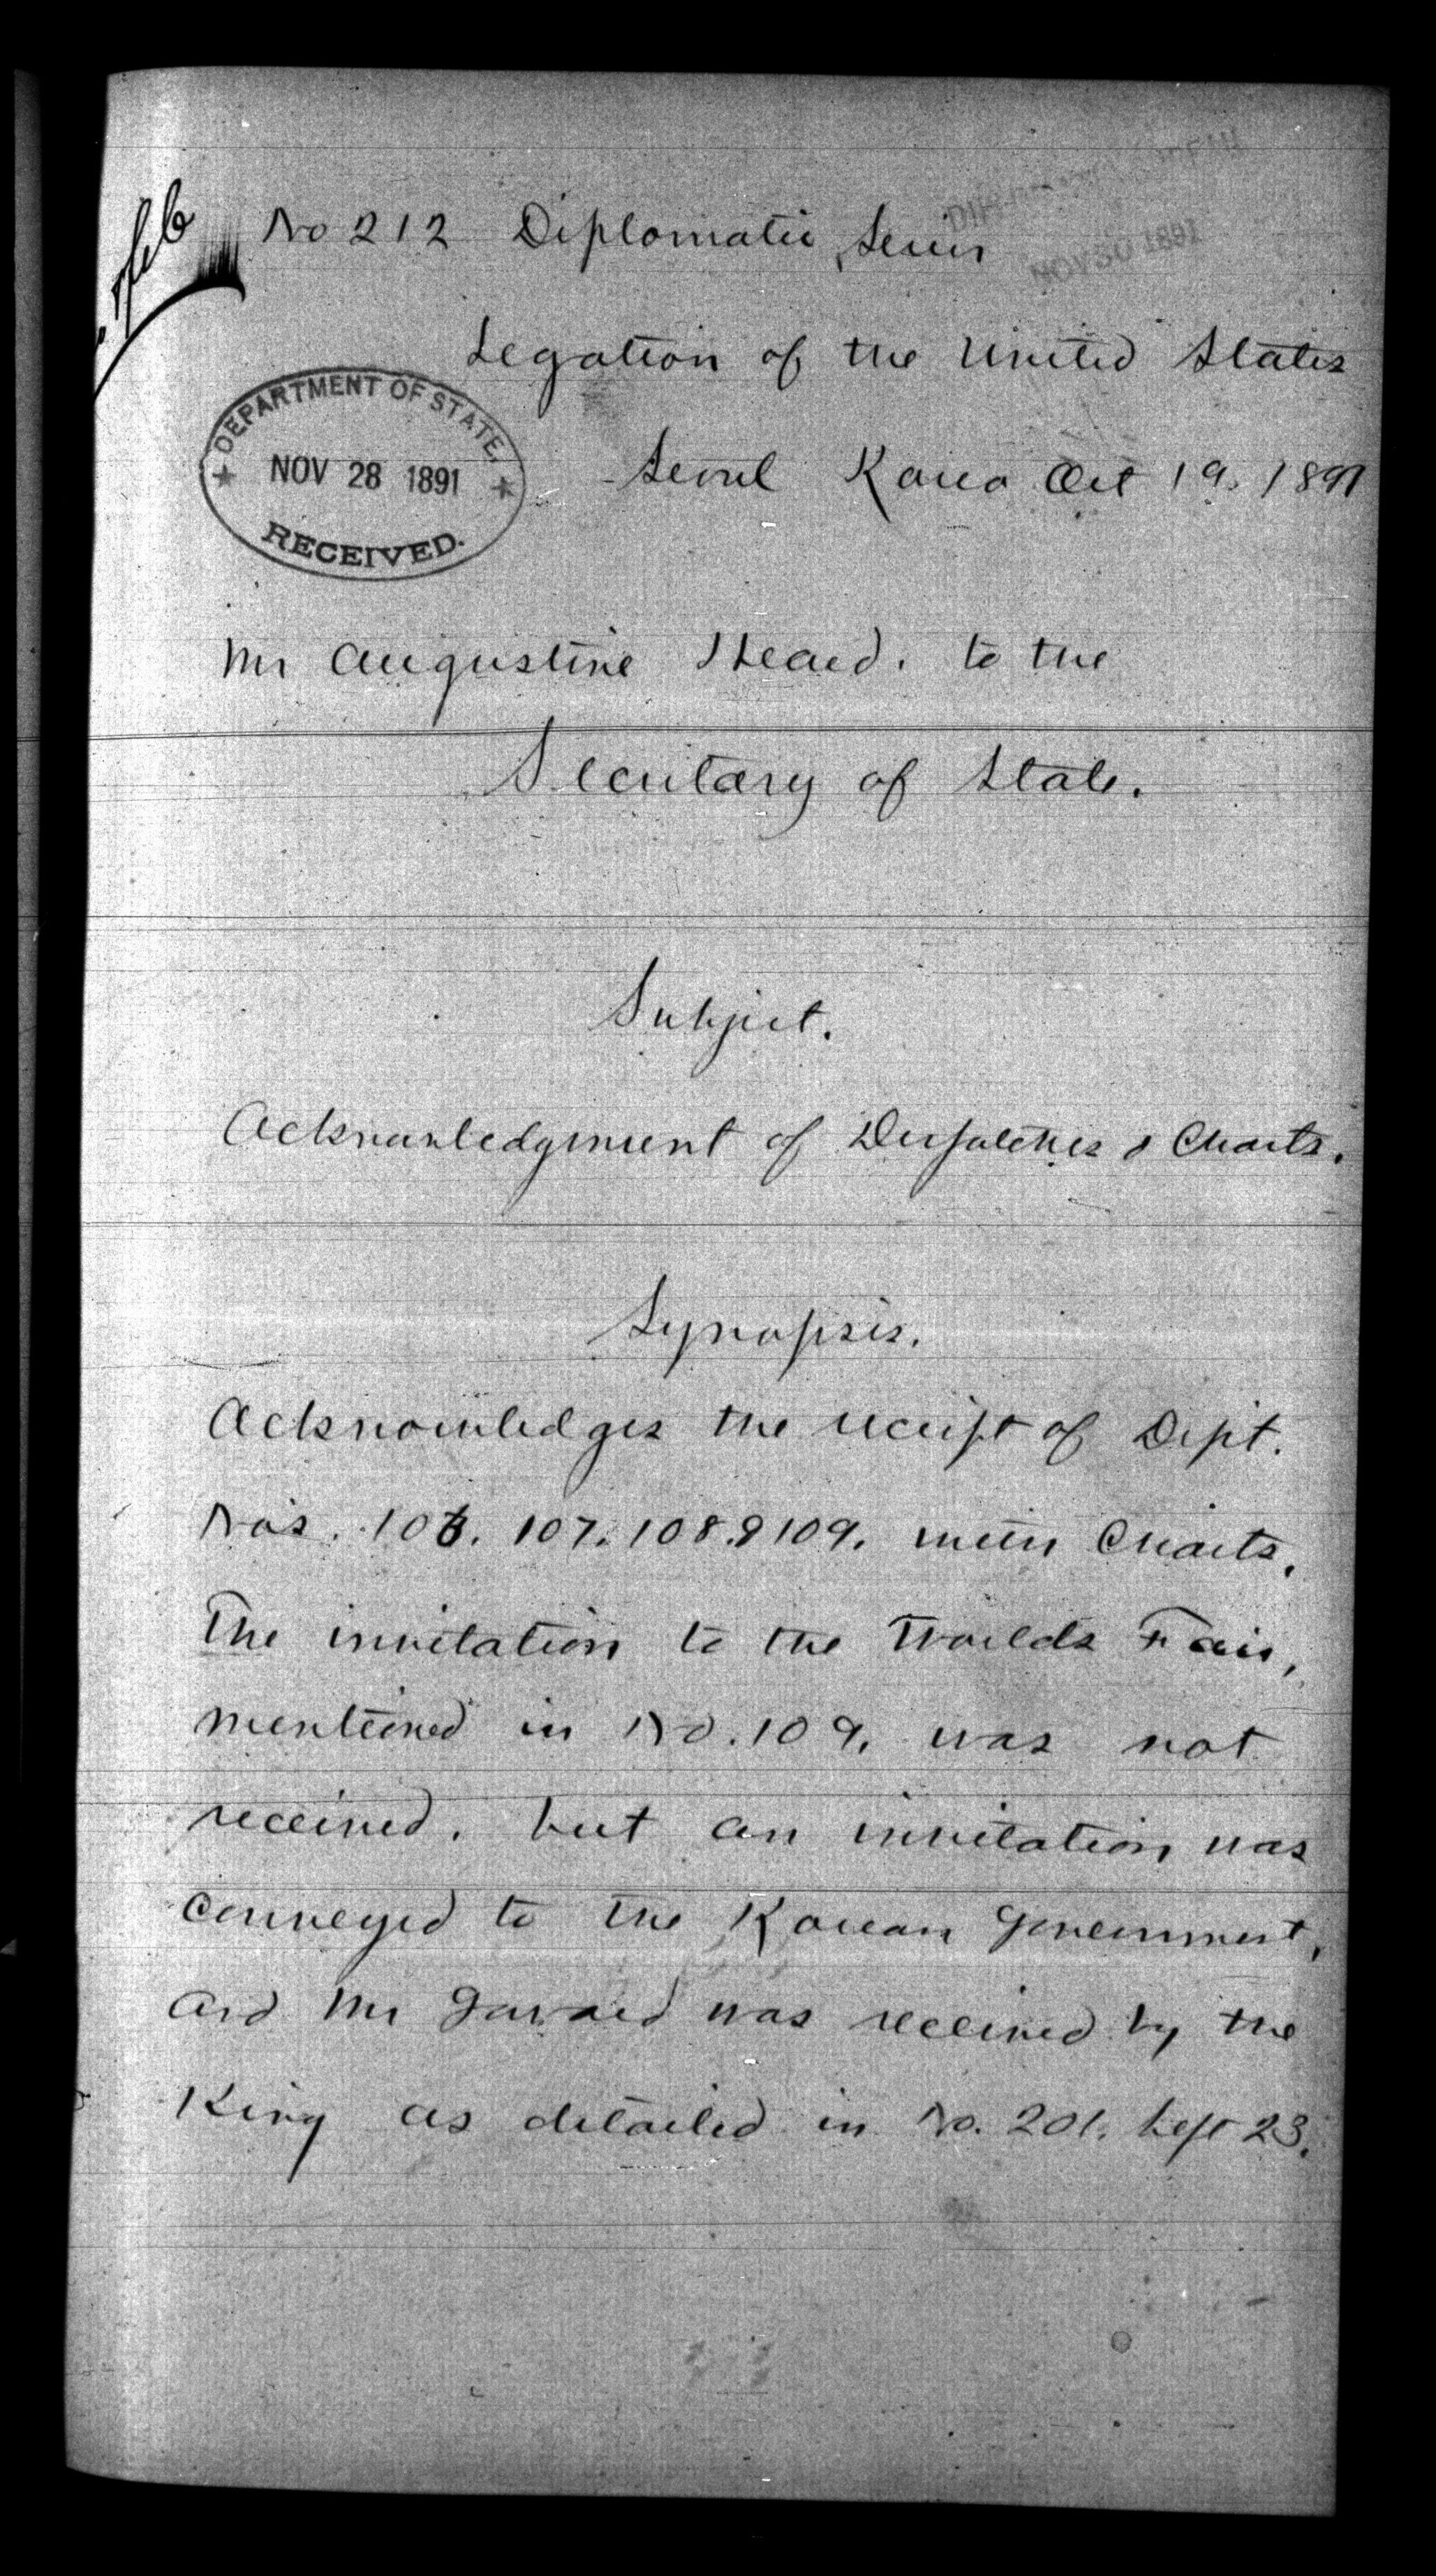 No 212 Diplomatic Series
Legation of the United States
DEPARTMENT OF STATE,
NOV 28 1891
RECEIVED.
Seoul Korea Oct 19. 1891
Mr Augustine Heard. to the
Secretary of State.
Subject.
Acknowledgment of Despatches & Charts.
Synopsis.
Acknowledges the receipt of Dept.
No's. 106. 107. 108. & 109. with Charts.
The invitation to the Worlds Fair,
mentioned in No. 109. was not
received. but an invitation was
conveyed to the Korean Government,
and Mr was received by the
King as detailed in No. 201. Sept 23.
NOV 30 1891